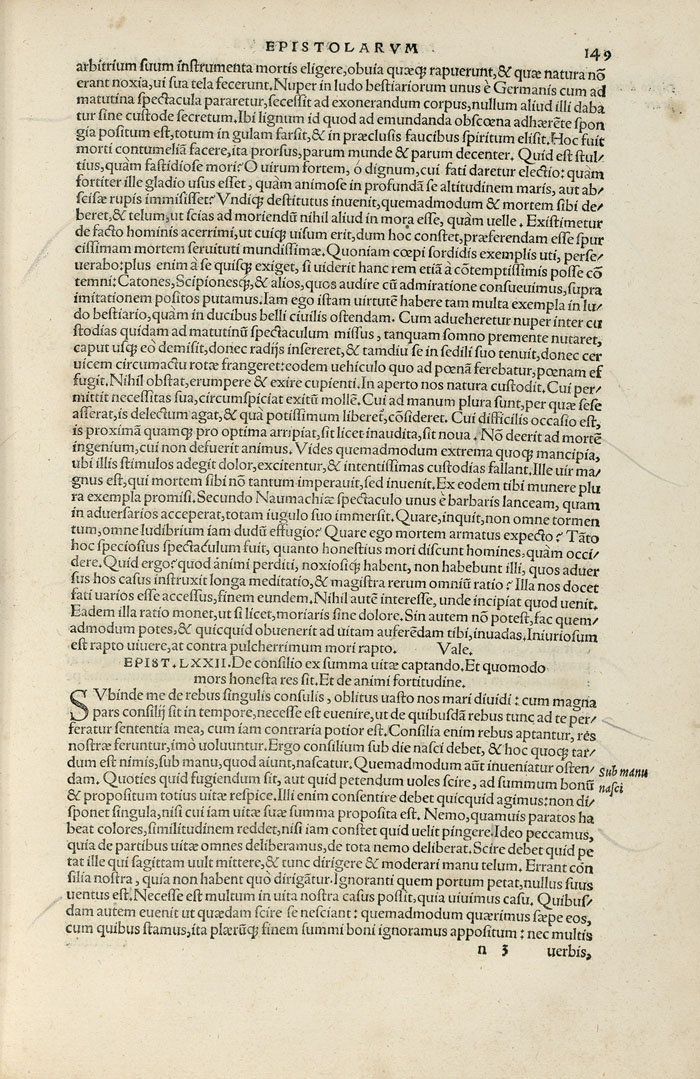 EPISTOLARVM
149
arbitrium suum instrumenta mortis eligere,obuia quæq; rapuerunt,& quæ natura nõ
erant noxia,ui sua tela fecerunt.Nuper in ludo bestiariorum unus è Germanis cum ad
matutina spectacula pararetur,secessit ad exonerandum corpus,nullum aliud illi daba
tur sine custode secretum.Ibi lignum id quod ad emundanda obscœna adhærẽte spon
gia positum est,totum in gulam farsit,& in præclusis faucibus spiritum elisit.Hoc fuit
morti contumeliã facere,ita prorsus,parum munde & parum decenter. Quid est stul/
tius,quàm fastidiose mori? O uirum fortem, ó dignum,cui fati daretur electio: quàm
fortiter ille gladio usus esset, quàm animose in profundã se altitudinem maris, aut ab/
scisæ rupis immisisset? Vndiq; destitutus inuenit,quemadmodum & mortem sibi de/
beret,& telum,ut scias ad moriendũ nihil aliud in mora esse, quàm uelle. Existimetur
de facto hominis acerrimi,ut cuiq; uisum erit,dum hoc constet,præferendam esse spur
cissimam mortem seruituti mundissimæ.Quoniam cœpi sordidis exemplis uti, perse/
uerabo:plus enim à se quisq; exiget, si uiderit hanc rem etiã à cõtemptissimis posse cõ
temni:Catones,Scipionesq;,& alios,quos audire cũ admiratione consueuimus,supra
imitationem positos putamus.Iam ego istam uirtutẽ habere tam multa exempla in lu/
do bestiario,quàm in ducibus belli ciuilis ostendam. Cum adueheretur nuper inter cu
stodias quidam ad matutinũ spectaculum missus, tanquam somno premente nutaret,
caput usq; eò demisit,donec radijs insereret,& tamdiu se in sedili suo tenuit,donec cer
uicem circumactu rotæ frangeret:eodem uehiculo quo ad pœnã ferebatur,pœnam ef
fugit.Nihil obstat,erumpere & exire cupienti.In aperto nos natura custodit.Cui per/
mittit necessitas sua,circumspiciat exitũ mollẽ. Cui ad manum plura sunt,per quæ sese
asserat,is delectum agat,& quà potissimum liberet,cõsideret. Cui difficilis occasio est,
is proximã quamq; pro optima arripiat,sit licet inaudita,sit noua. Nõ deerit ad mortẽ
ingenium,cui non defuerit animus. Vides quemadmodum extrema quoq; mancipia,
ubi illis stimulos adegit dolor,excitentur,& intentissimas custodias fallant.Ille uir ma/
gnus est,qui mortem sibi nõ tantum imperauit,sed inuenit. Ex eodem tibi munere plu
ra exempla promisi.Secundo Naumachiæ spectaculo unus è barbaris lanceam, quam
in aduersarios acceperat,totam iugulo suo immersit. Quare,inquit,non omne tormen
tum,omne ludibrium iam dudũ effugio? Quare ego mortem armatus expecto? Tãto
hoc speciosius spectaculum fuit, quanto honestius mori discunt homines,quàm occi/
dere.Quid ergo? quod animi perditi, noxiosiq; habent, non habebunt illi, quos aduer
sus hos casus instruxit longa meditatio,& magistra rerum omniũ ratio? Illa nos docet
fati uarios esse accessus,finem eundem.Nihil autẽ interesse, unde incipiat quod uenit.
Eadem illa ratio monet,ut si licet,moriaris sine dolore.Sin autem nõ potest,fac quem/
admodum potes,& quicquid obuenerit ad uitam auferẽdam tibi,inuadas.Iniuriosum
est rapto uiuere,at contra pulcherrimum mori rapto. Vale.
EPIST.LXXII.De consilio ex summa uitæ captando.Et quomodo
mors honesta res sit.Et de animi fortitudine.
SVbinde me de rebus singulis consulis, oblitus uasto nos mari diuidi: cum magna
pars consilij sit in tempore,necesse est euenire,ut de quibusdã rebus tunc ad te per/
feratur sententia mea, cum iam contraria potior est.Consilia enim rebus aptantur, res
nostræ feruntur,imò uoluuntur.Ergo consilium sub die nasci debet, & hoc quoq; tar/
dum est nimis,sub manu,quod aiunt,nascatur. Quemadmodum aũt inueniatur osten/
dam. Quoties quid fugiendum sit, aut quid petendum uoles scire, ad summum bonũ
& propositum totius uitæ respice.Illi enim consentire debet quicquid agimus:non di/
sponet singula,nisi cui iam uitæ suæ summa proposita est. Nemo,quamuis paratos ha
beat colores,similitudinem reddet,nisi iam constet quid uelit pingere.Ideo peccamus,
quia de partibus uitæ omnes deliberamus,de tota nemo deliberat.Scire debet quid pe
tat ille qui sagittam uult mittere,& tunc dirigere & moderari manu telum. Errant con
silia nostra, quia non habent quò dirigãtur.Ignoranti quem portum petat,nullus suus
uentus est.Necesse est multum in uita nostra casus possit,quia uiuimus casu. Quibus/
dam autem euenit ut quædam scire se nesciant: quemadmodum quærimus sæpe eos,
cum quibus stamus,ita plærũq; finem summi boni ignoramus appositum: nec multis
Sub manu
nasci
n 3 uerbis,